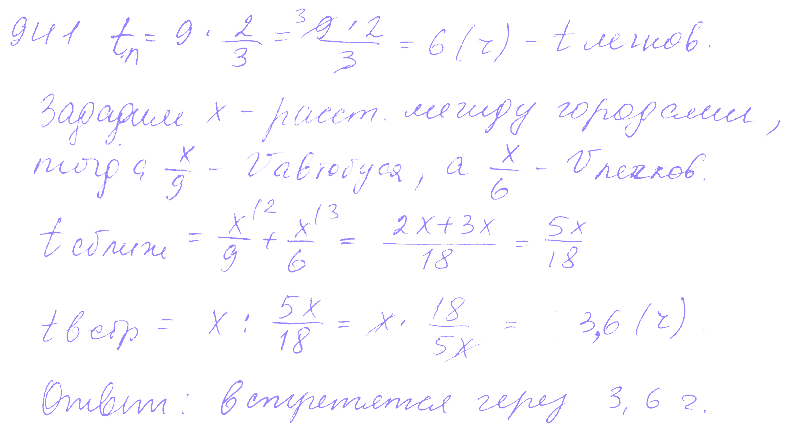 941 tл = 9 · 2/3 = 9·2/3 = 6 (ч) – t легков.
Зададим x – расст. между городами,
тогда x/9 – V автобуса, а x/6 – V легков.
t сближ = x/9 + x/6 = 2x+3x/18 = 5x/18
t встр = x : 5x/18 = x · 18/5x = 3,6 (ч)
Ответ: встретятся через 3,6 ч.